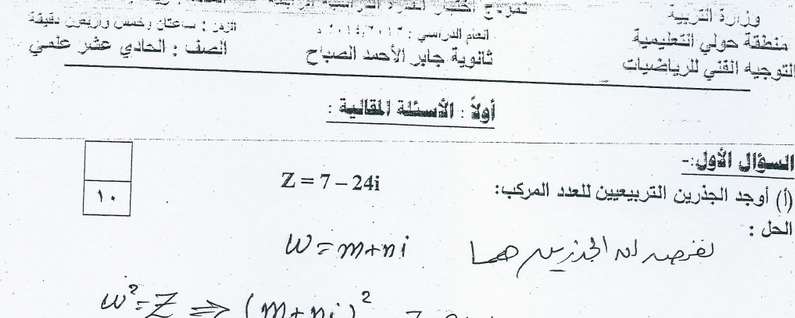 وزارة التربية
منطقة حولي التعليمية
التوجيه الفني للرياضيات
العام الدراسي : ٢٠١٤/٢٠١٣ م
ثانوية جابر الأحمد الصباح
الزمن : ساعتان وخمس وأربعون دقيقة
الصف : الحادي عشر علمي
أولاً : الأسئلة المقالية :
السؤال الأول:-
(أ) أوجد الجذرين التربيعيين للعدد المركب: Z = 7 – 24i
١٠
الحل :
نفرض ان الجذرين هما w = m+ni
w² = Z ⇒ (m+ni)²